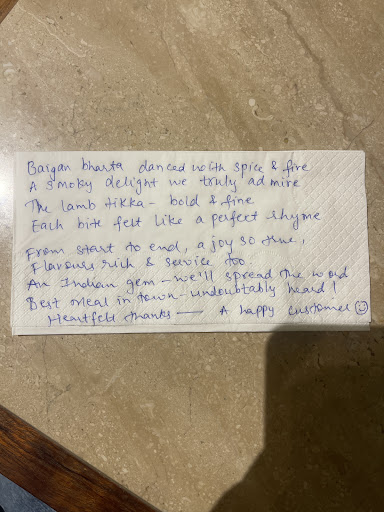 Baigan bharta danced with spice & fire
A smoky delight we truly admire
The lamb tikka - bold & fine
Each bite felt like a perfect rhyme
From start to end, a joy so true,
Flavours rich & service too.
An Indian gem - we'll spread the word
Best meal in town - undoubtably heard!
Heartfelt thanks — A happy customer ☺